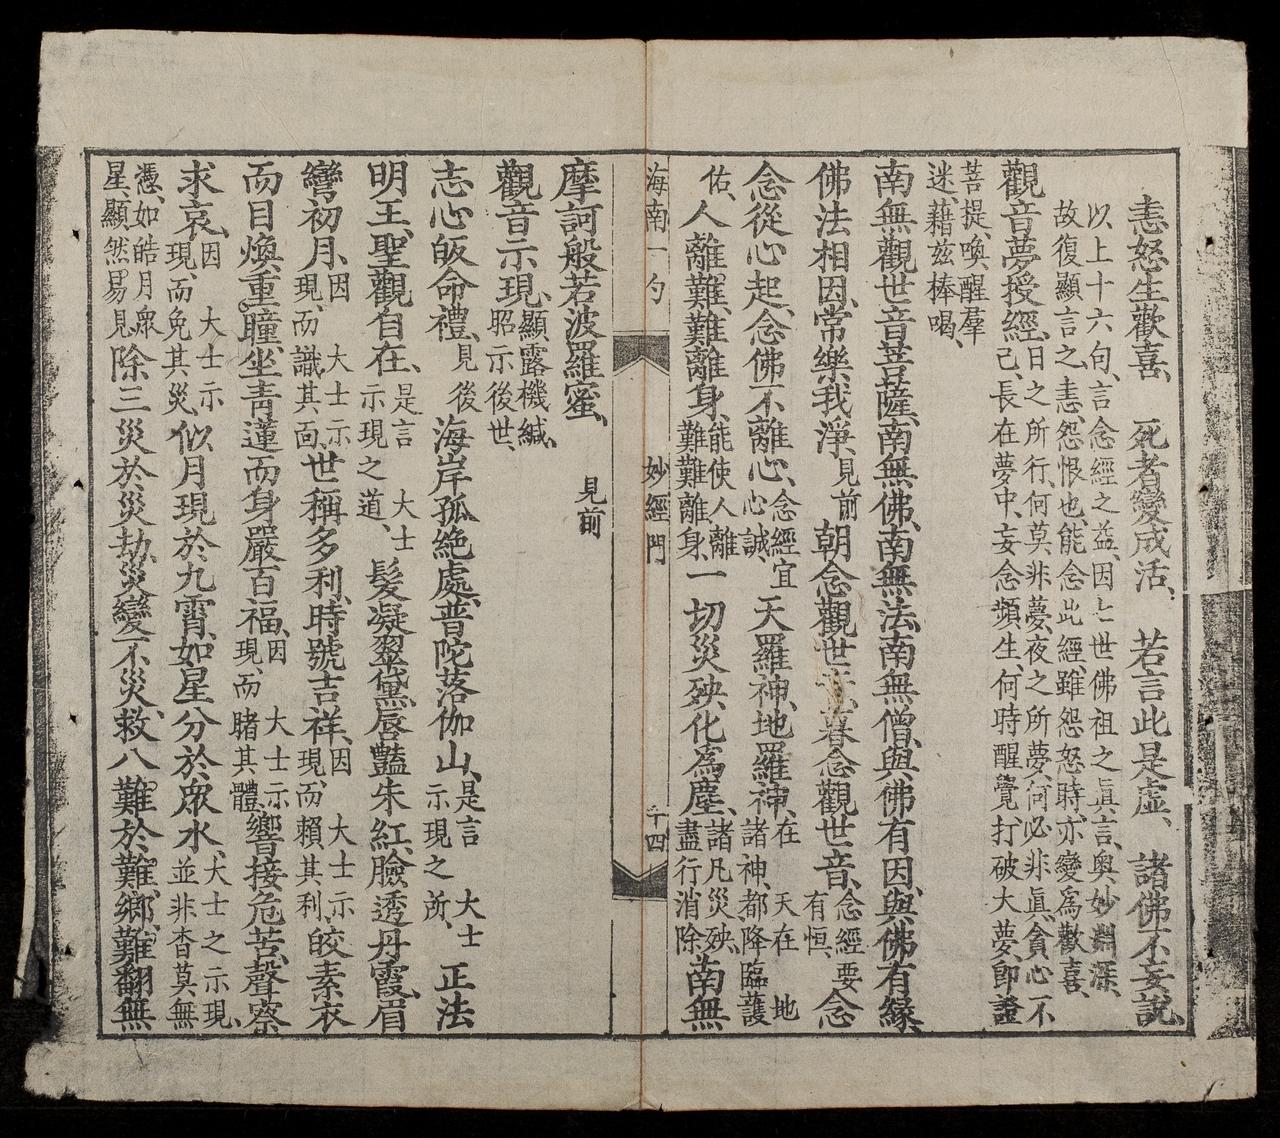 恚怒生歡喜、死者變成活、若言此是虛、諸佛不妄說、
以上十六句、言念經之益、因七世佛祖之真言、奧妙淵深、
故復顯言之、恚、怨恨也、能念此經、雖怨怒時、亦變為歡喜、
觀音夢授經、日之所行、何莫非夢、夜之所夢、何必非真、貪心不
己、長在夢中、妄念頻生、何時醒覺、打破大夢、即證
菩提、喚醒羣
迷、藉茲棒喝、
南無觀世音菩薩、南無佛、南無法、南無僧、與佛有因、與佛有緣、
佛法相因、常樂我淨、見前朝念觀世音、暮念觀世音、念經要有恒、念
念從心起、念佛不離心、念經宜心誠、天羅神、地羅神、在天在地諸神、都降臨護
佑、人離難、難離身、能使人離難難離身、一切災殃化為塵、諸凡災殃、盡行消除南無
海南一勺 妙經門 千四
摩訶般若波羅蜜、見前
觀音示現、顯露機緘、昭示後世、
志心皈命禮、見後海岸孤絶處、普陀落伽山、是言大士示現之所、正法
明王、聖觀自在、是言大士示現之道、髮凝翠黛、唇豔朱紅、臉透丹霞、眉
彎初月、因大士示現、而識其面、世稱多利、時號吉祥、因大士示現、而賴其利、皎素衣
而目煥重瞳、坐青蓮而身嚴百福、因大士示現、而睹其體、響接危苦、聲察
求哀、因大士示現、而免其災、似月現於九霄、如星分於眾水、大士之示現、並非杳莫無
憑、如皓月眾星、顯然易見除三災於災劫、災變不災、救八難於難鄉、難翻無